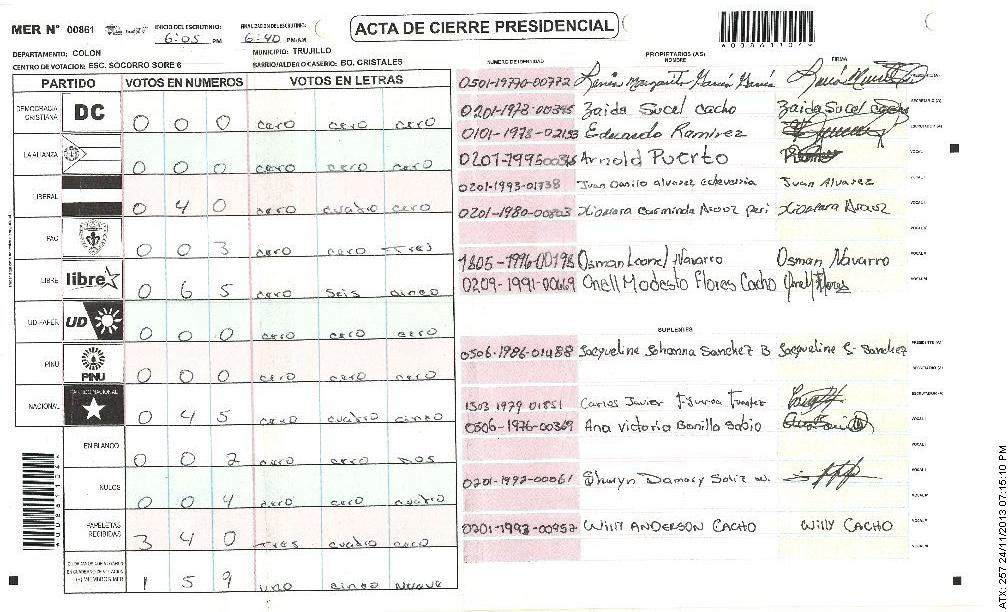 MER N° 00861
INICIO DEL ESCRUTINIO: 6:05 PM
FINALIZACION DEL ESCRUTINIO: 6:40 PM/AM
ACTA DE CIERRE PRESIDENCIAL
DEPARTAMENTO: COLON
MUNICIPIO: TRUJILLO
CENTRO DE VOTACION: ESC. SOCORRO SORE 6
BARRIO/ALDEA O CASERIO: BO. CRISTALES
PARTIDO VOTOS EN NUMEROS VOTOS EN LETRAS
DEMOCRACIA CRISTIANA DC 0 0 0 cero cero cero
LA ALIANZA 0 0 0 cero cero cero
LIBERAL 0 4 0 cero cuatro cero
PAC 0 0 3 cero cero Tres
LIBRE libre 0 6 5 cero seis cinco
UD-FAPER UD 0 0 0 cero cero cero
PINU PINU 0 0 0 cero cero cero
NACIONAL PARTIDO NACIONAL 0 4 5 cero cuatro cinco
EN BLANCO 0 0 2 cero cero Dos
NULOS 0 0 4 cero cero cuatro
PAPELETAS RECIBIDAS 3 4 0 Tres cuatro cero
(+) MIEMBROS MER 1 5 9 uno cinco nueve
PROPIETARIOS (AS)
NUMERO DE IDENTIDAD NOMBRE FIRMA
0501-19770-00772
0201-1973-00395 Zaida Sucel Cacho Zaida Sucel Cacho
0101-1978-02153 Eduardo Ramirez
Arnold Puerto
0201-1993-01738 Juan Danilo alvarez echeverria Juan Alvarez
0201-1980-00803 Xiomara Carminda Arouz Xiomara Arouz
1805-1996-00198 Osman Leonel Navarro Osman Navarro
0209-1991-00669 Onell Modesto Flores Cacho Onell Flores
SUPLENTES
0506-1986-01488 Jacqueline Johanna Sanchez B Jacqueline J. Sanchez
1503 1979 01851 Carlos Javier Figueroa
0506-1976-00369 Ana victoria Bonilla Sabio
0201-1992-00061 Sharyn Damary Soliz
0201-1993-00952 WILLY ANDERSON CACHO WILLY CACHO
ATX: 257 24/11/2013 07:15:10 PM